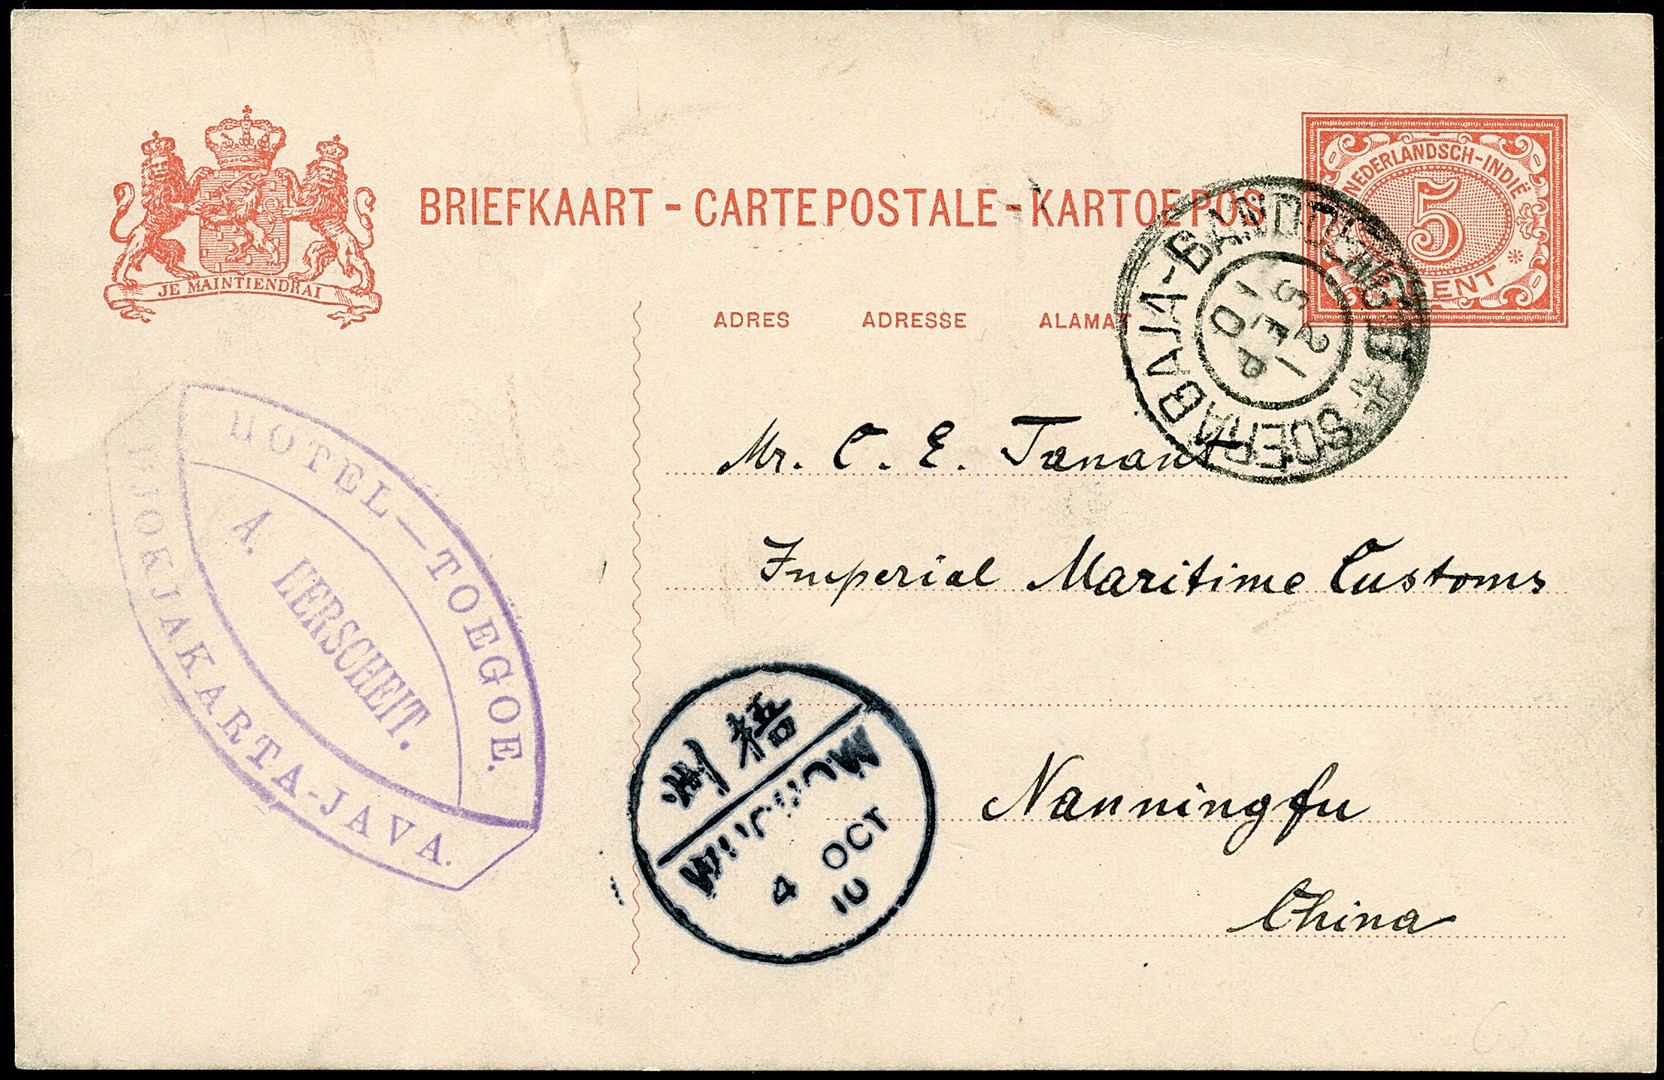 BRIEFKAART - CARTE POSTALE - KARTOE POS
JE MAINTIENDRAI
NEDERLANDSCH-INDIË
5
CENT
ADRES ADRESSE ALAMAT
SOERABAJA-BANDOENG
21
SEP
10
Mr. C. E. Tanant
Imperial Maritime Customs
Nanningfu
China
HOTEL—TOEGOE.
A. HERSCHEIT.
DJOKJAKARTA-JAVA.
梧州
WUCHOW
4 OCT
10